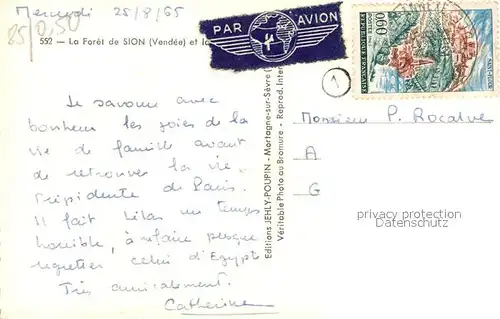 Mercredi 25/8/65
85/0,50
552 - La Forêt de SION (Vendée) et la
PAR AVION
0,60
SAINT-FLOUR
Je savoure avec
bonheur les joies de la
vie de famille avant
de retrouver la vie
trépidente de Paris.
Il fait hélas un temps
horrible, à me faire presque
regretter celui d'Egypte
Très amicalement.
Catherine
Editions JEHLY-POUPIN - Mortagne-sur-Sèvre
Véritable Photo au Bromure - Reprod. Inter
1
Monsieur P. Rocalve
A
G
privacy protection
datenschutz